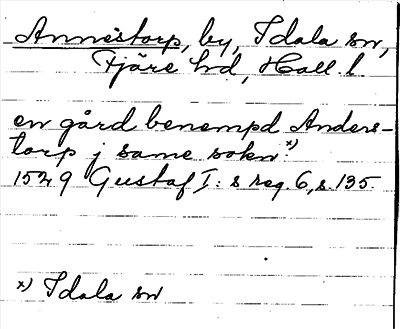 Annestorp, by, Idala sn,
Fjäre hd, Hall. l.
en gård benempd Anders-
torp j same sokn x)
1529 Gustaf I:s reg. 6, s. 135.
x) Idala sn